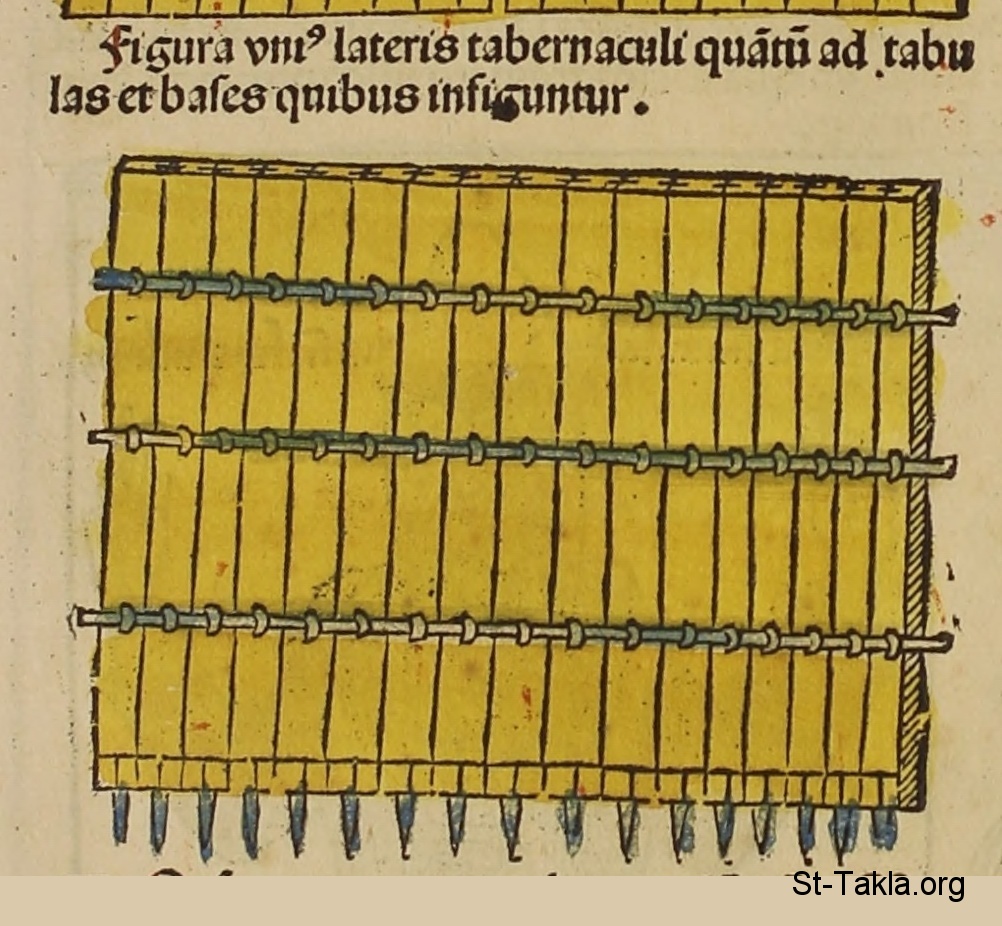 Figura vniꝰ lateris tabernaculi quãtũ ad tabu
las et baſes quibus infiguntur.
St-Takla.org